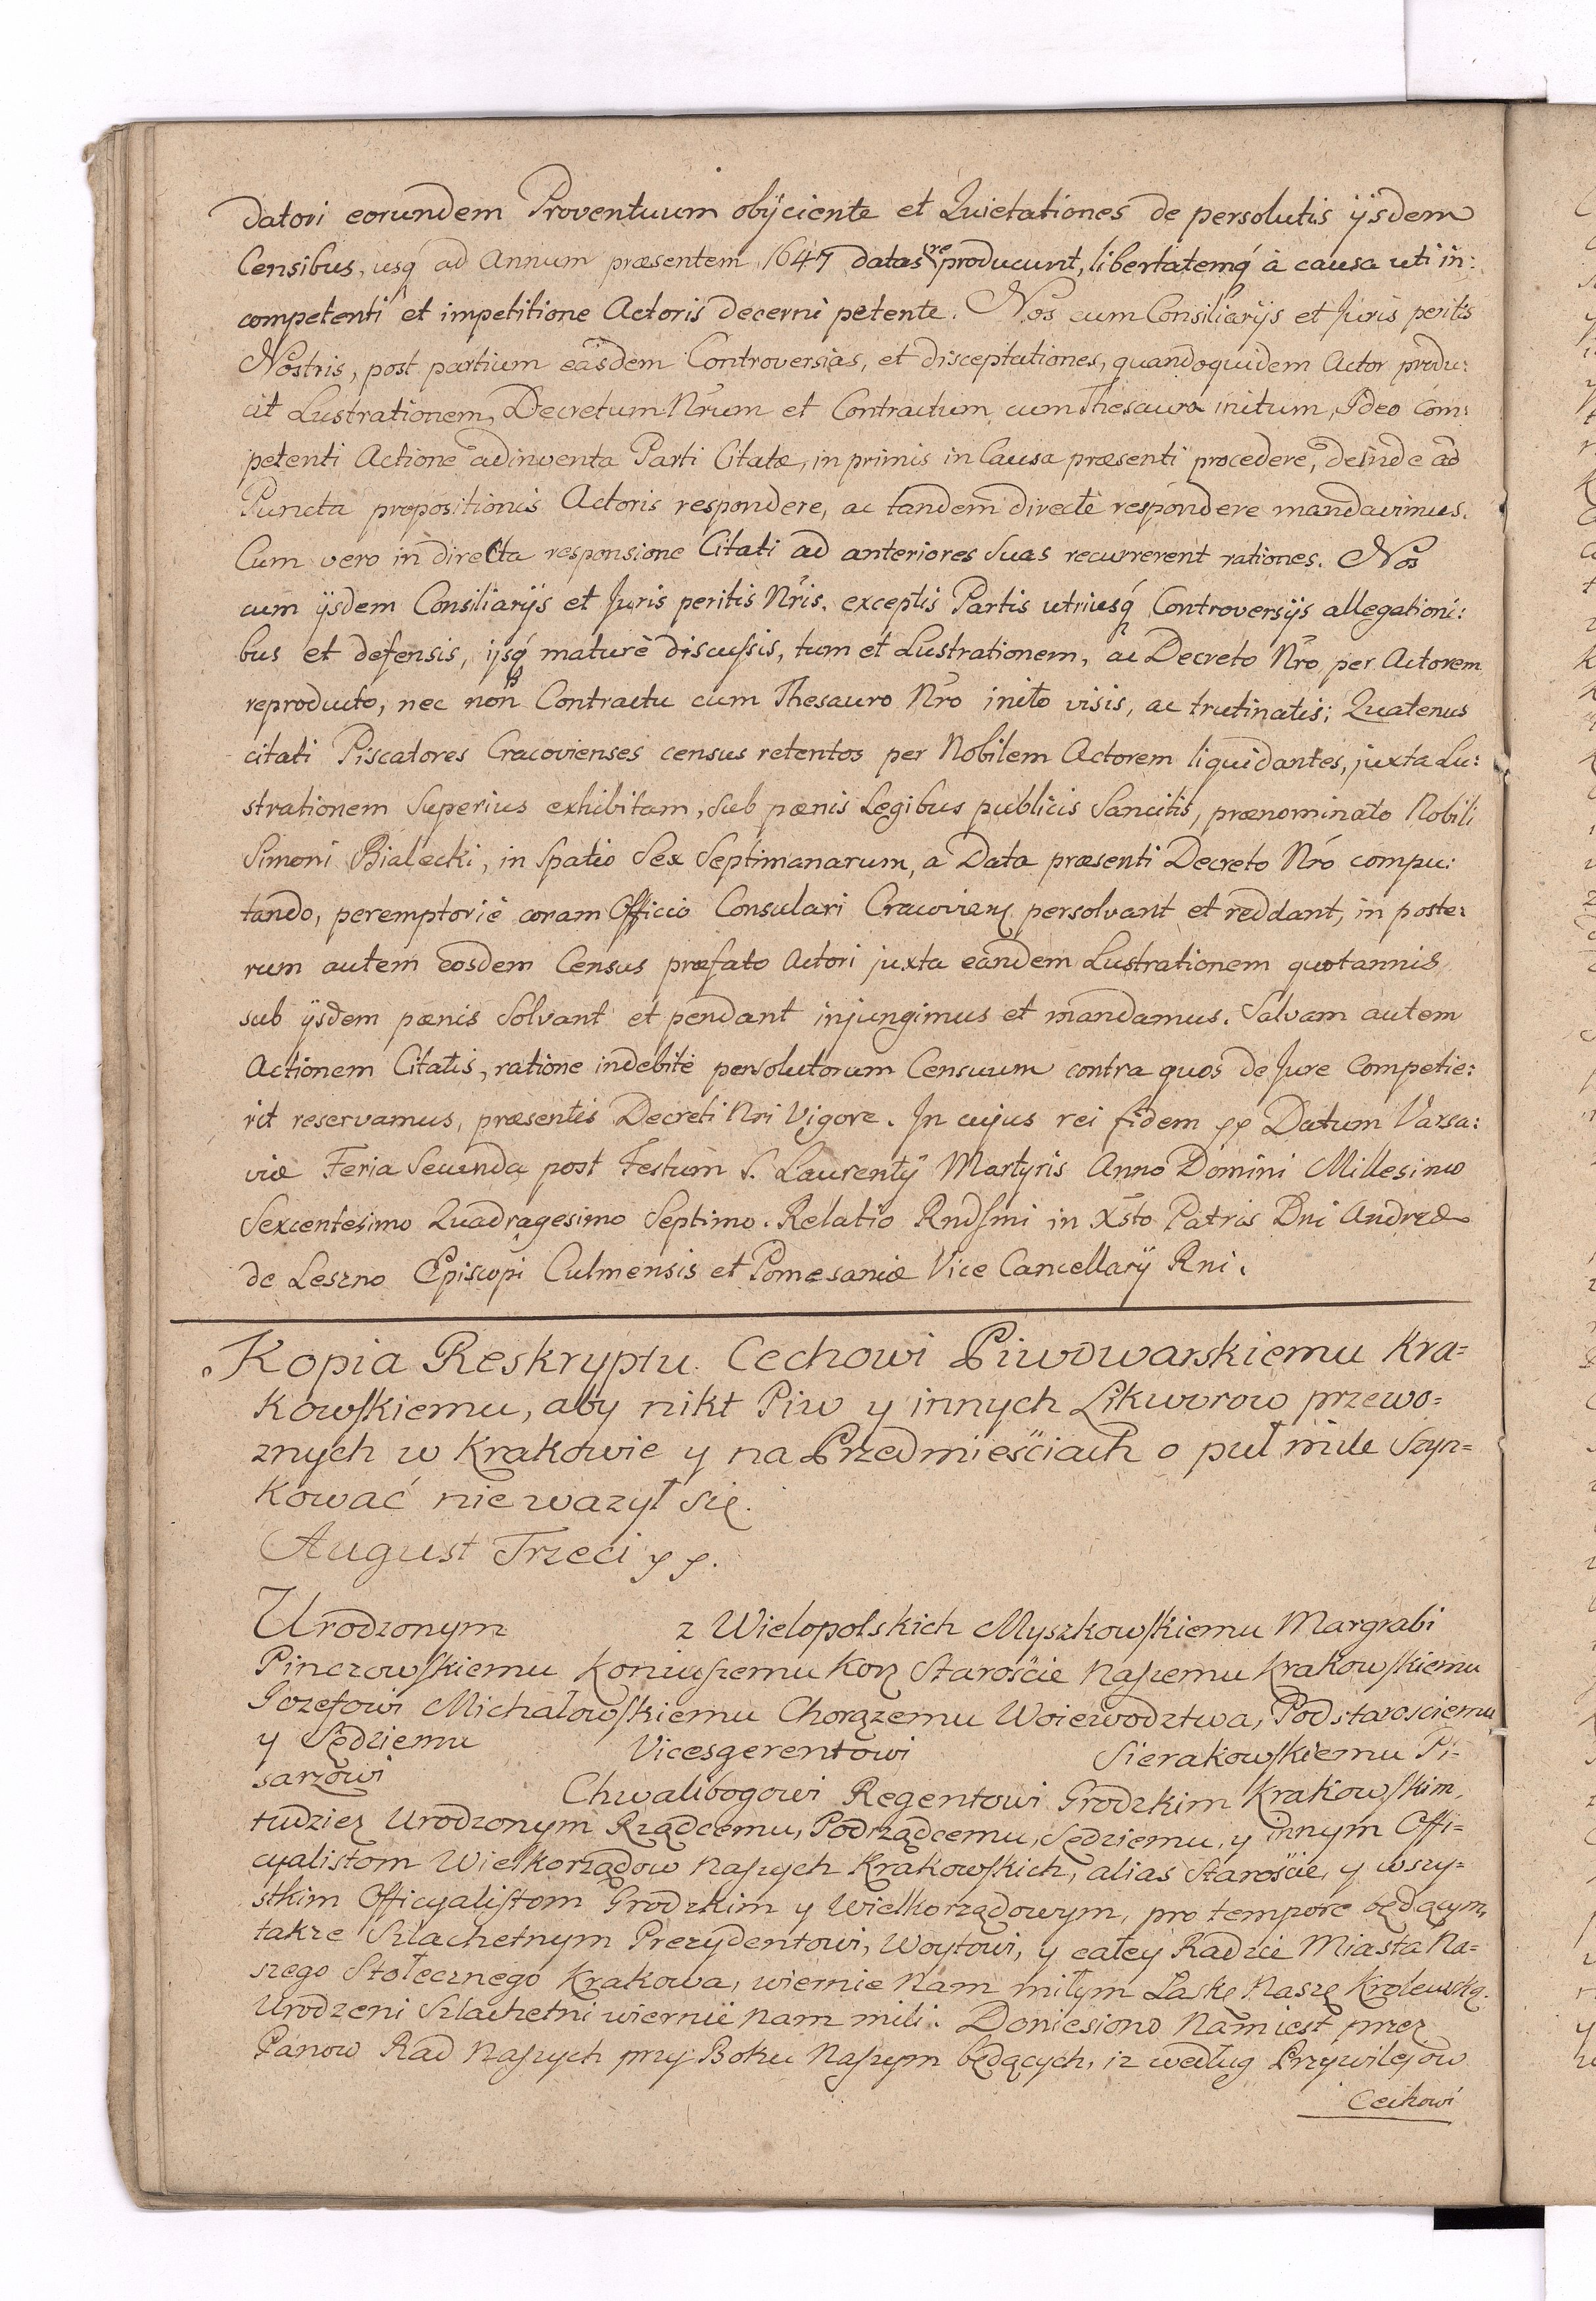 datori eorundem Proventuum obijciente et Quietationes de persolutis ijsdem
Censibus, usq́ ad Annum præsentem 1647 datas reproducunt, libertatemq́ à causa uti in:
competenti et impetitione Actoris decerni petente. Nos cum Consiliarijs et Juris peritis
Nostris, post partium easdem Controversias, et disceptationes, quandoquidem Actor produ:
cit Lustrationem, Decretum Nrum et Contractum cum Thesauro initum, Ideo Com:
petenti Actione adinventa Parti Citatæ, in primis in Causa præsenti procedere, deinde ad
Puncta propositionis Actoris respondere, ac tandem directè respondere mandavimus.
Cum vero in directa responsione Citati ad anteriores suas recurrerent rationes. Nos
cum ijsdem Consiliarijs et Juris peritis Nris. exceptis Partis utriusq́ Controversijs allegationi:
bus et defensis, ijsq́ maturè discussis, tum et Lustrationem, ac Decreto Nro per Actorem
reproducto, nec non Contractu cum Thesauro Nro inito visis, ac trutinatis; Quatenus
citati Piscatores Cracovienses census retentos per Nobilem Actorem liquidantes, juxta Lu:
strationem Superius exhibitam, Sub pænis Legibus publicis Sancitis, prænominato Nobili
Simoni Bialecki, in Spatio Sex Septimanarum, a Data præsenti Decreto Nro compu:
tando, peremptoriè coram Officio Consulari Cracovieng persolvant et reddant, in poste:
rum autem eosdem Census præfato Actori juxta eandem Lustrationem quotannis
sub ijsdem pænis Solvant et pendant injungimus et mandamus. Salvam autem
Actionem Citatis, ratione indebitè persolutorum Censuum contra quos de Jure Competie:
rit reservamus, præsentis Decreti Nri Vigore. In cujus rei fidem pp Datum Varsa:
viæ Feria Secunda post Festum S. Laurentij Martyris Anno Domini Millesimo
Sexcentesimo Quadragesimo Septimo. Relatio Rndsmi in Xsto Patris Dni Andreæ
de Leszno Episcopi Culmensis et Pomesaniæ Vice Cancellarij Rni.
Kopia Reskryptu Cechowi Piwowarskiemu Kra=
kowskiemu, aby nikt Piw y innych Likworow przewo=
znych w Krakowie y na Przedmieściach o puł mile Szyn=
kować nie ważył się.
August Trzeci pp.
Urodzonym z Wielopolskich Myszkowskiemu Margrabi
Pinczowskiemu Koniuszemu Kor Starościе Naszemu Krakowskiemu
Jozefowi Michałowskiemu Chorążemu Woiewodztwa, Podstarosciemu
y Sędziemu Vicesgerentowi Sierakowskiemu Pi=
sarzowi Chwalibogowi Regentowi Grodzkim Krakowskim,
tudziez Urodzonym Rządcemu, Podrządcemu, Sędziemu, y innym Offi=
cyalistom Wielkorządow Naszych Krakowskich, alias Starościе, y wszy=
stkim Officyalistom Grodzkim y Wielkorządowym, pro tempore będącym,
takze Szlachetnym Prezydentowi, Woytowi, y całey Radzie Miasta Na=
szego Stołecznego Krakowa, wiernie Nam miłym Łaskę Naszę Krolewską.
Urodzeni Szlachetni wiernie Nam mili. Doniesiono Nam iest przez
Panow Rad Naszych przy Boku Naszym będących, iz według Przywilejow
Cechowi